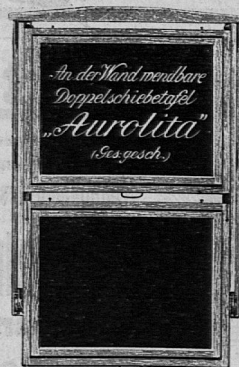 An der Wand wendbare
Doppelschiebetafel
„Aurolita“
(Ges. gesch.)